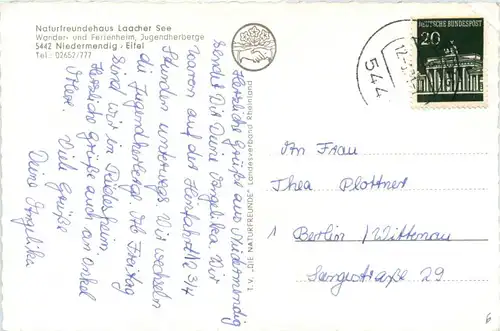 Naturfreundehaus Laacher See
Wander- und Ferienheim, Jugendherberge
5442 Niedermendig - Eifel
Tel.: 02652/777
T.V. „DIE NATURFREUNDE" Landesverband Rheinland
DEUTSCHE BUNDESPOST
20
544
12.
Herzliche Grüße aus Niedermendig
sendet Dir Deine Angelika. Wir
waren auf der Hinfahrt 12 3/4
Stunden unterwegs. Wir wechseln
die Jugendherberge. Ab Freitag
sind wir in Rüdesheim.
Herzliche Grüße auch an Onkel
Viele Grüße
Deine Angelika
An Frau
Thea Plottner
1 Berlin / Wittenau
29
6